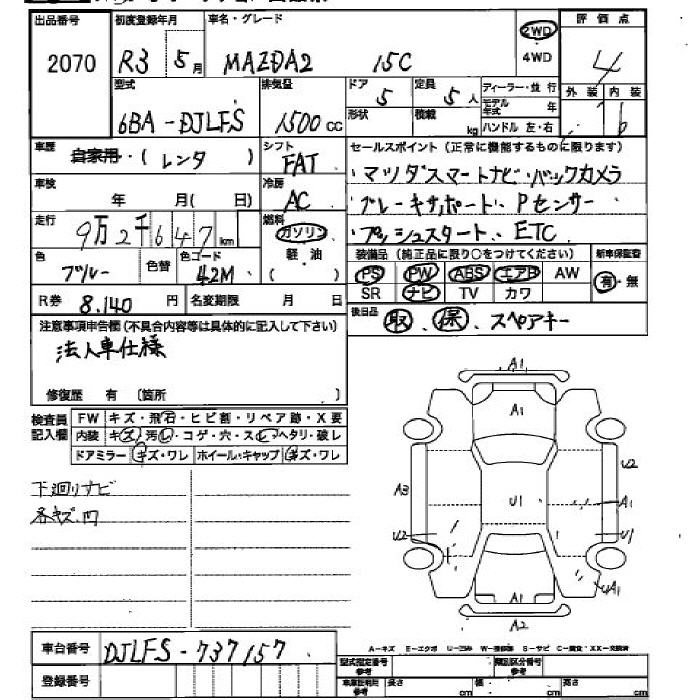 出品番号 初度登録年月 車名・グレード 2WD 評価点
2070 R3 5月 MAZDA2 15C 4WD 4
型式 排気量 ドア 定員 ディーラー・並行 外装 内装
6BA-DJLFS 1500cc 5 5人 モデル年式 年 b
形状 積載 kg ハンドル 左・右
車歴 自家用・(レンタ) シフト FAT セールスポイント(正常に機能するものに限ります)
車検 年 月(日) 冷房 AC ・マツダスマートナビ・バックカメラ
走行 9万2千647km 燃料 ガソリン 軽・油 ・ブレーキサポート、Pセンサー
・プッシュスタート、ETC
色 ブルー 色替 色コード 42M ( ) 装備品(純正品に限り○をつけてください) 新車保証書
PS PW ABS エアB AW 有・無
R券 8.140円 名変期限 月 日 SR ナビ TV カワ
注意事項申告欄(不具合内容等は具体的に記入して下さい) 後日品 取、保、スペアキー
法人車仕様
修復歴 有 (箇所 )
検査員記入欄 FW キズ・飛石・ヒビ割・リペア跡・X要
内装 キズ・汚レ・コゲ・穴・スレ・ヘタリ・破レ
ドアミラー キズ・ワレ ホイール・キャップ キズ・ワレ
下廻りサビ
各キズ、凹
A1
A1
U2
A3 U1 A1
U2 U1
A1 4A1
A2
A-キズ E-エクボ U-凹み W-補修跡 S-サビ C-腐食・XX-交換済
車台番号 DJLFS-737157
登録番号 型式指定番号 類別区分番号
車庫証明用参考 長さ cm 幅 cm 高さ cm